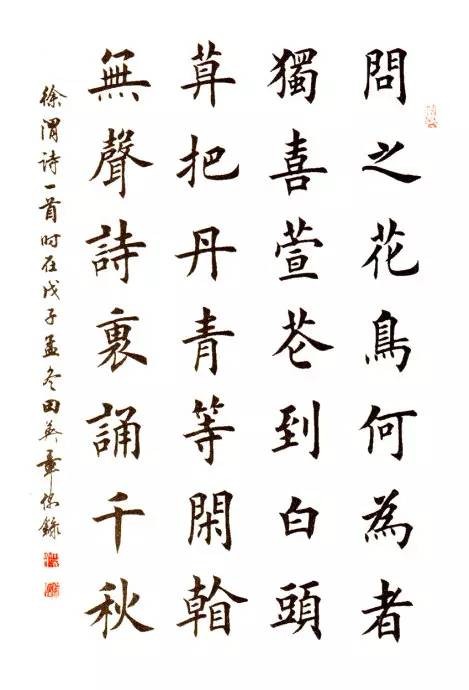 問之花鳥何為者
獨喜萱芲到白頭
莫把丹青等閑看
無聲詩裏誦千秋
徐渭詩一首时在戊子孟冬田英章錄